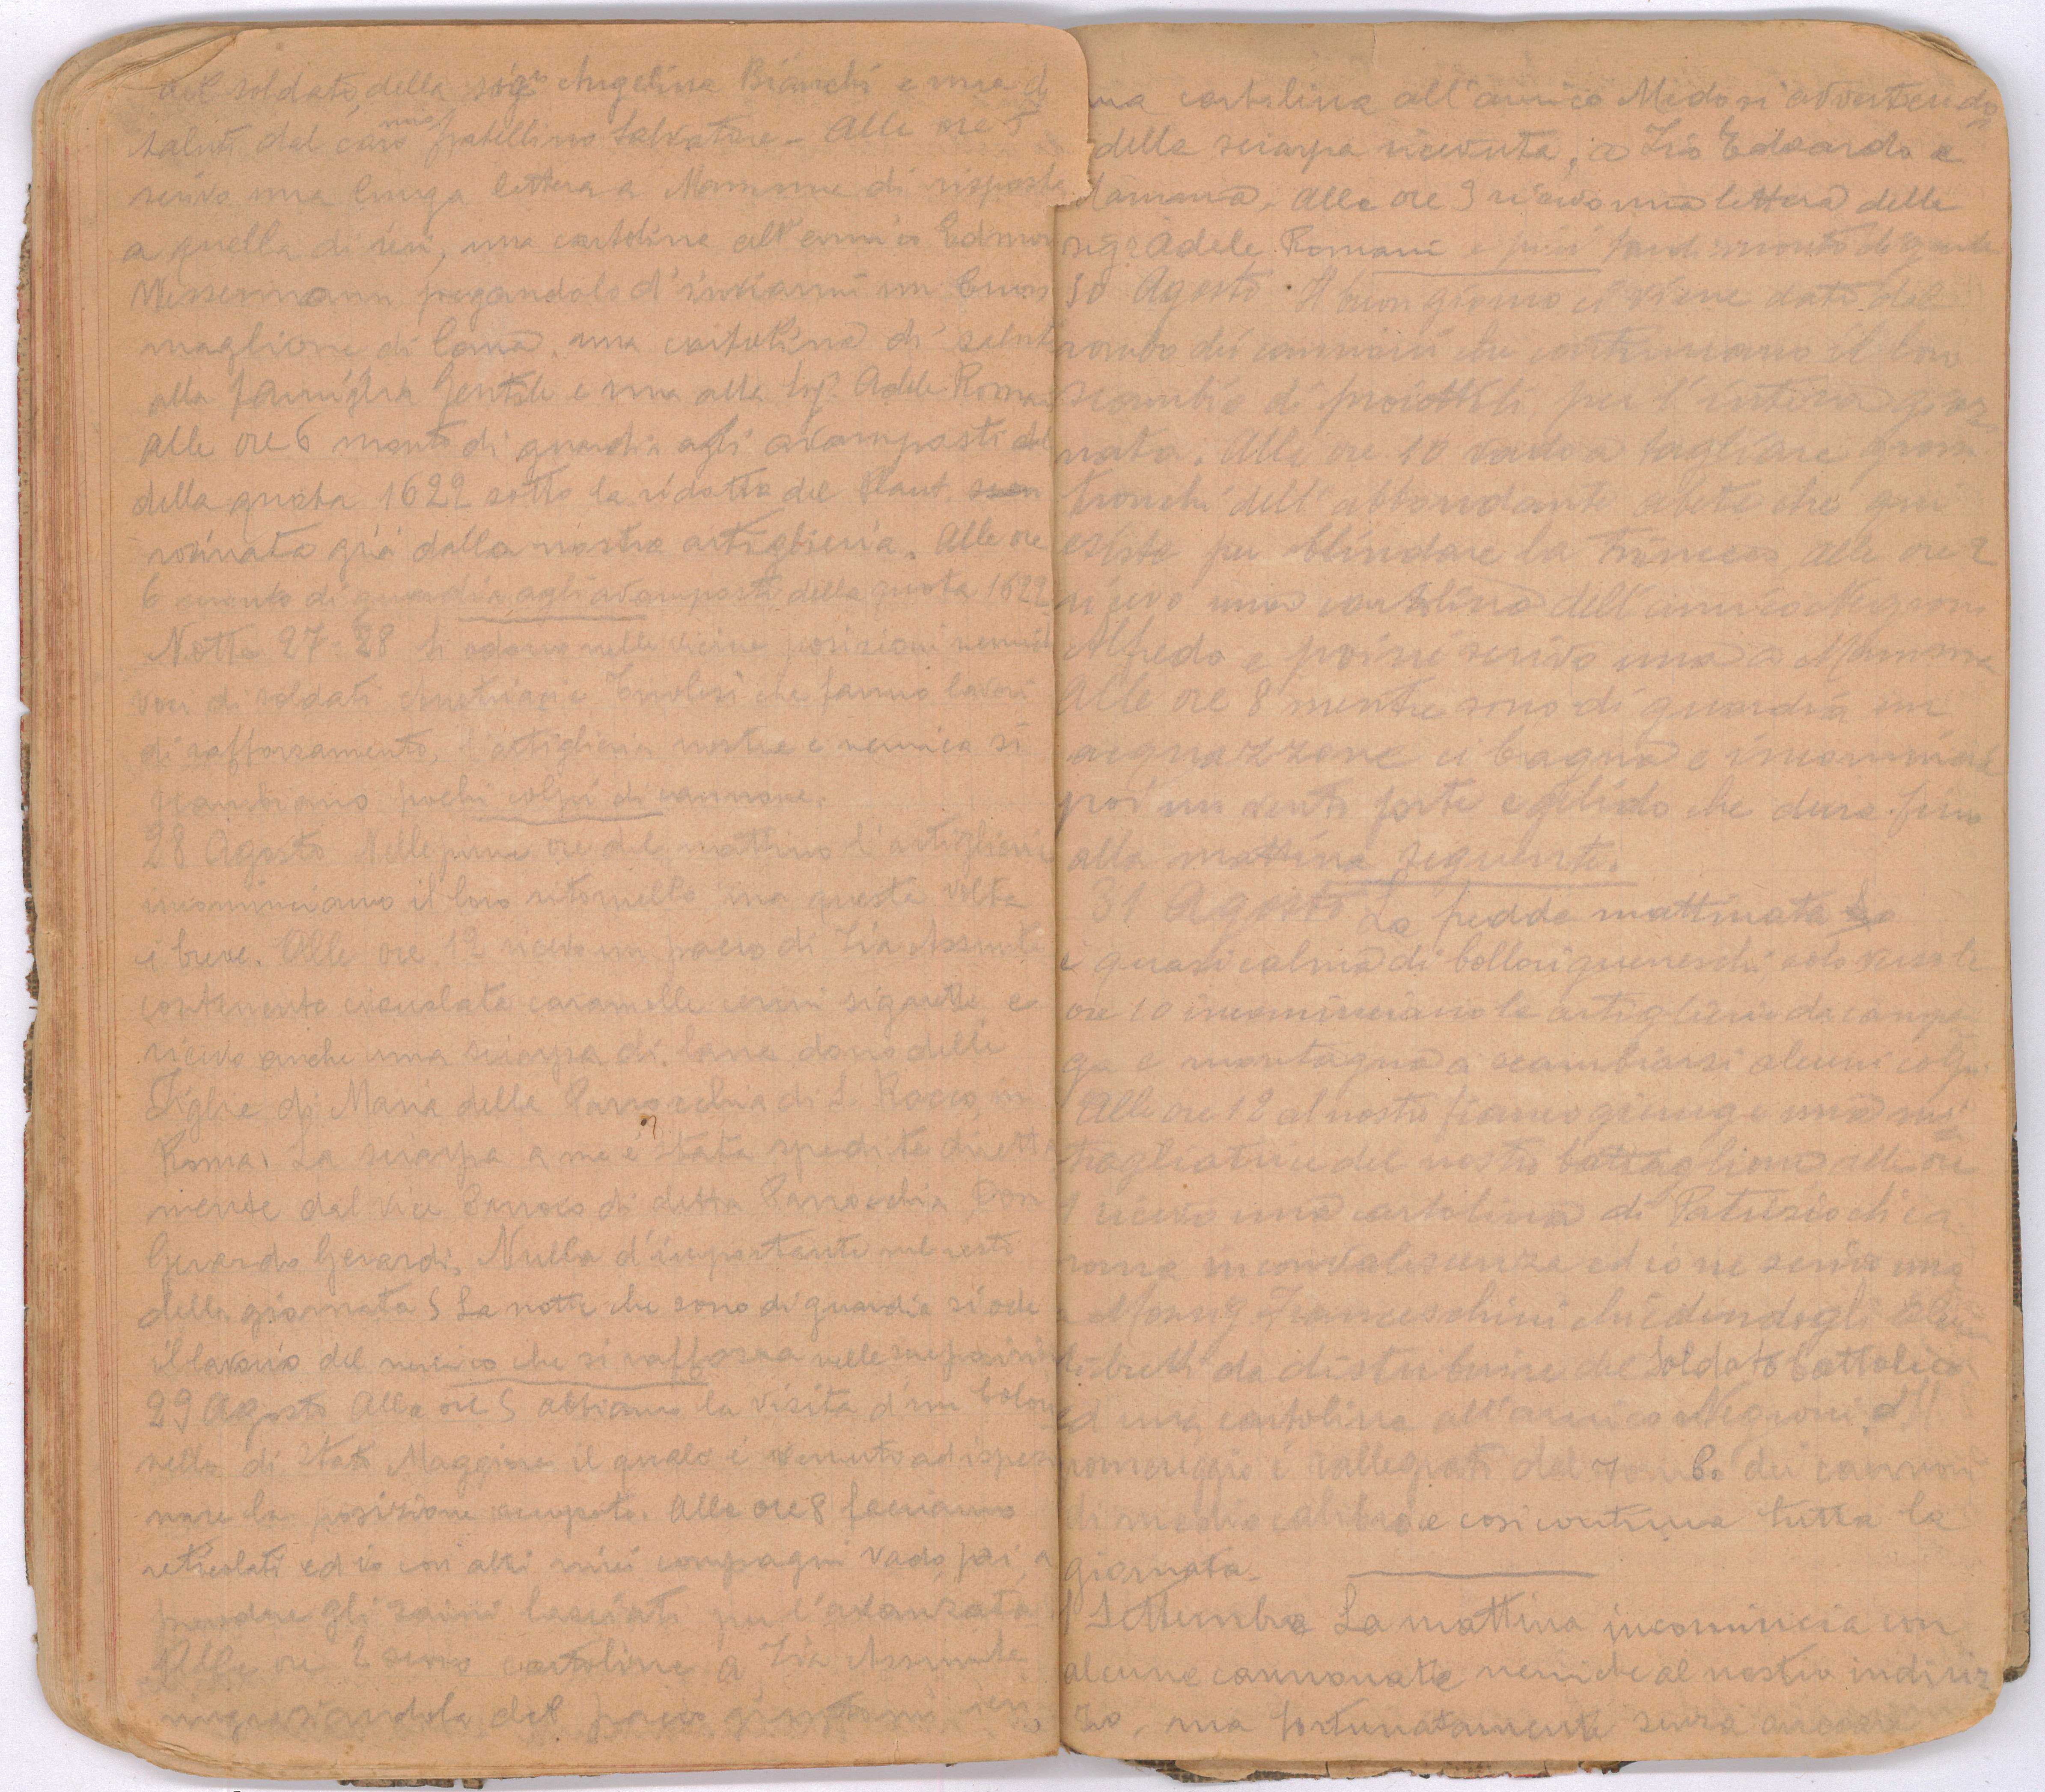 del soldato, della sig.na Angelina Bianchi e una di
saluti dal caro mio fratellino Salvatore - Alle ore 5
scrivo una lunga lettera a Mamma di risposta
a quella di ieri, una cartolina all'amico Edmon
Messermann pregandolo d'inviarmi un buon
maglione di lana, una cartolina di saluti
alla famiglia Gentile e una alla Sig.a Adele Romani
alle ore 6 monto di guardia agli avamposti del
della quota 1622 sotto la ridotta del Plaut
rovinata già dalla nostra artiglieria. Alle ore
6 smonto di guardia agli avamposti della quota 1622
Notte 27-28 Si odono nelle vicine posizioni nemiche
voci di soldati austriaci e Tirolesi che fanno lavori
di rafforzamento, l'artiglieria nostra e nemica si
scambiano pochi colpi di cannone.
28 Agosto Nelle prime ore del mattino l'artiglieria
incominciano il loro ritornello ma questa volta
è breve. Alle ore 12 ricevo un pacco di Zia Assunta
contenente cioccolata caramelle cerini sigarette e
ricevo anche una sciarpa di lana dono delle
Figlie di Maria della Parrocchia di S. Rocco in
Roma. La sciarpa a me è stata spedita diretta
mente dal Vice Parroco di detta Parrocchia Don
Gerardo Gerardi. Nulla d'importante nel resto
della giornata La notte che sono di guardia si ode
il lavorio del nemico che si rafforza nelle sue posizioni
29 Agosto Alle ore 5 abbiamo la visita d'un Colon
nello di Stato Maggiore il quale è venuto ad ispezio
nare la posizione occupata. Alle ore 8 facciamo
reticolati ed io con altri miei compagni vado poi a
prendere gli zaini lasciati per l'avanzata
Alle ore 2 scrivo cartoline a Zia Assunta
ringraziandola del pacco giuntomi ieri,
una cartolina all'amico Midosi avvertendo
della sciarpa ricevuta, a Zio Edoardo e
Mamma. Alle ore 3 ricevo una lettera della
sig.a Adele Romani e più tardi smonto di guardia
30 Agosto Il buon giorno ci viene dato dal
rombo dei cannoni che continuano il loro
scambio di proiettili per l'intera gior
nata. Alle ore 10 vado a tagliare grossi
tronchi dell'abbondante abete che qui
esiste per blindare la trincea, alle ore 2
ricevo una cartolina dell'amico Negroni
Alfredo e poi ne scrivo una a Mamma
Alle ore 8 mentre sono di guardia un
acquazzone ci bagna e incomincia
poi un vento forte e gelido che dura fino
alla mattina seguente.
31 Agosto La fredda mattinata
è quasi calma di bollori guerreschi solo verso le
ore 10 incominciano le artiglierie da campa
gna e montagna a scambiarsi alcuni colpi
Alle ore 12 al nostro fianco giunge una mi
tragliatrice del nostro battaglione alle ore
1 ricevo una cartolina di Patrizio che
trova in convalescenza ed io ne scrivo una
a Monsig. Franceschini chiedendogli alcuni
libretti da distribuire del Soldato Cattolico
ed una cartolina all'amico Negroni. Il
pomeriggio è rallegrato dal rombo dei cannoni
di medio calibro e così continua tutta la
giornata.
1 Settembre La mattina incomincia con
alcune cannonate nemiche al nostro indiriz
zo, ma fortunatamente senza arrecare